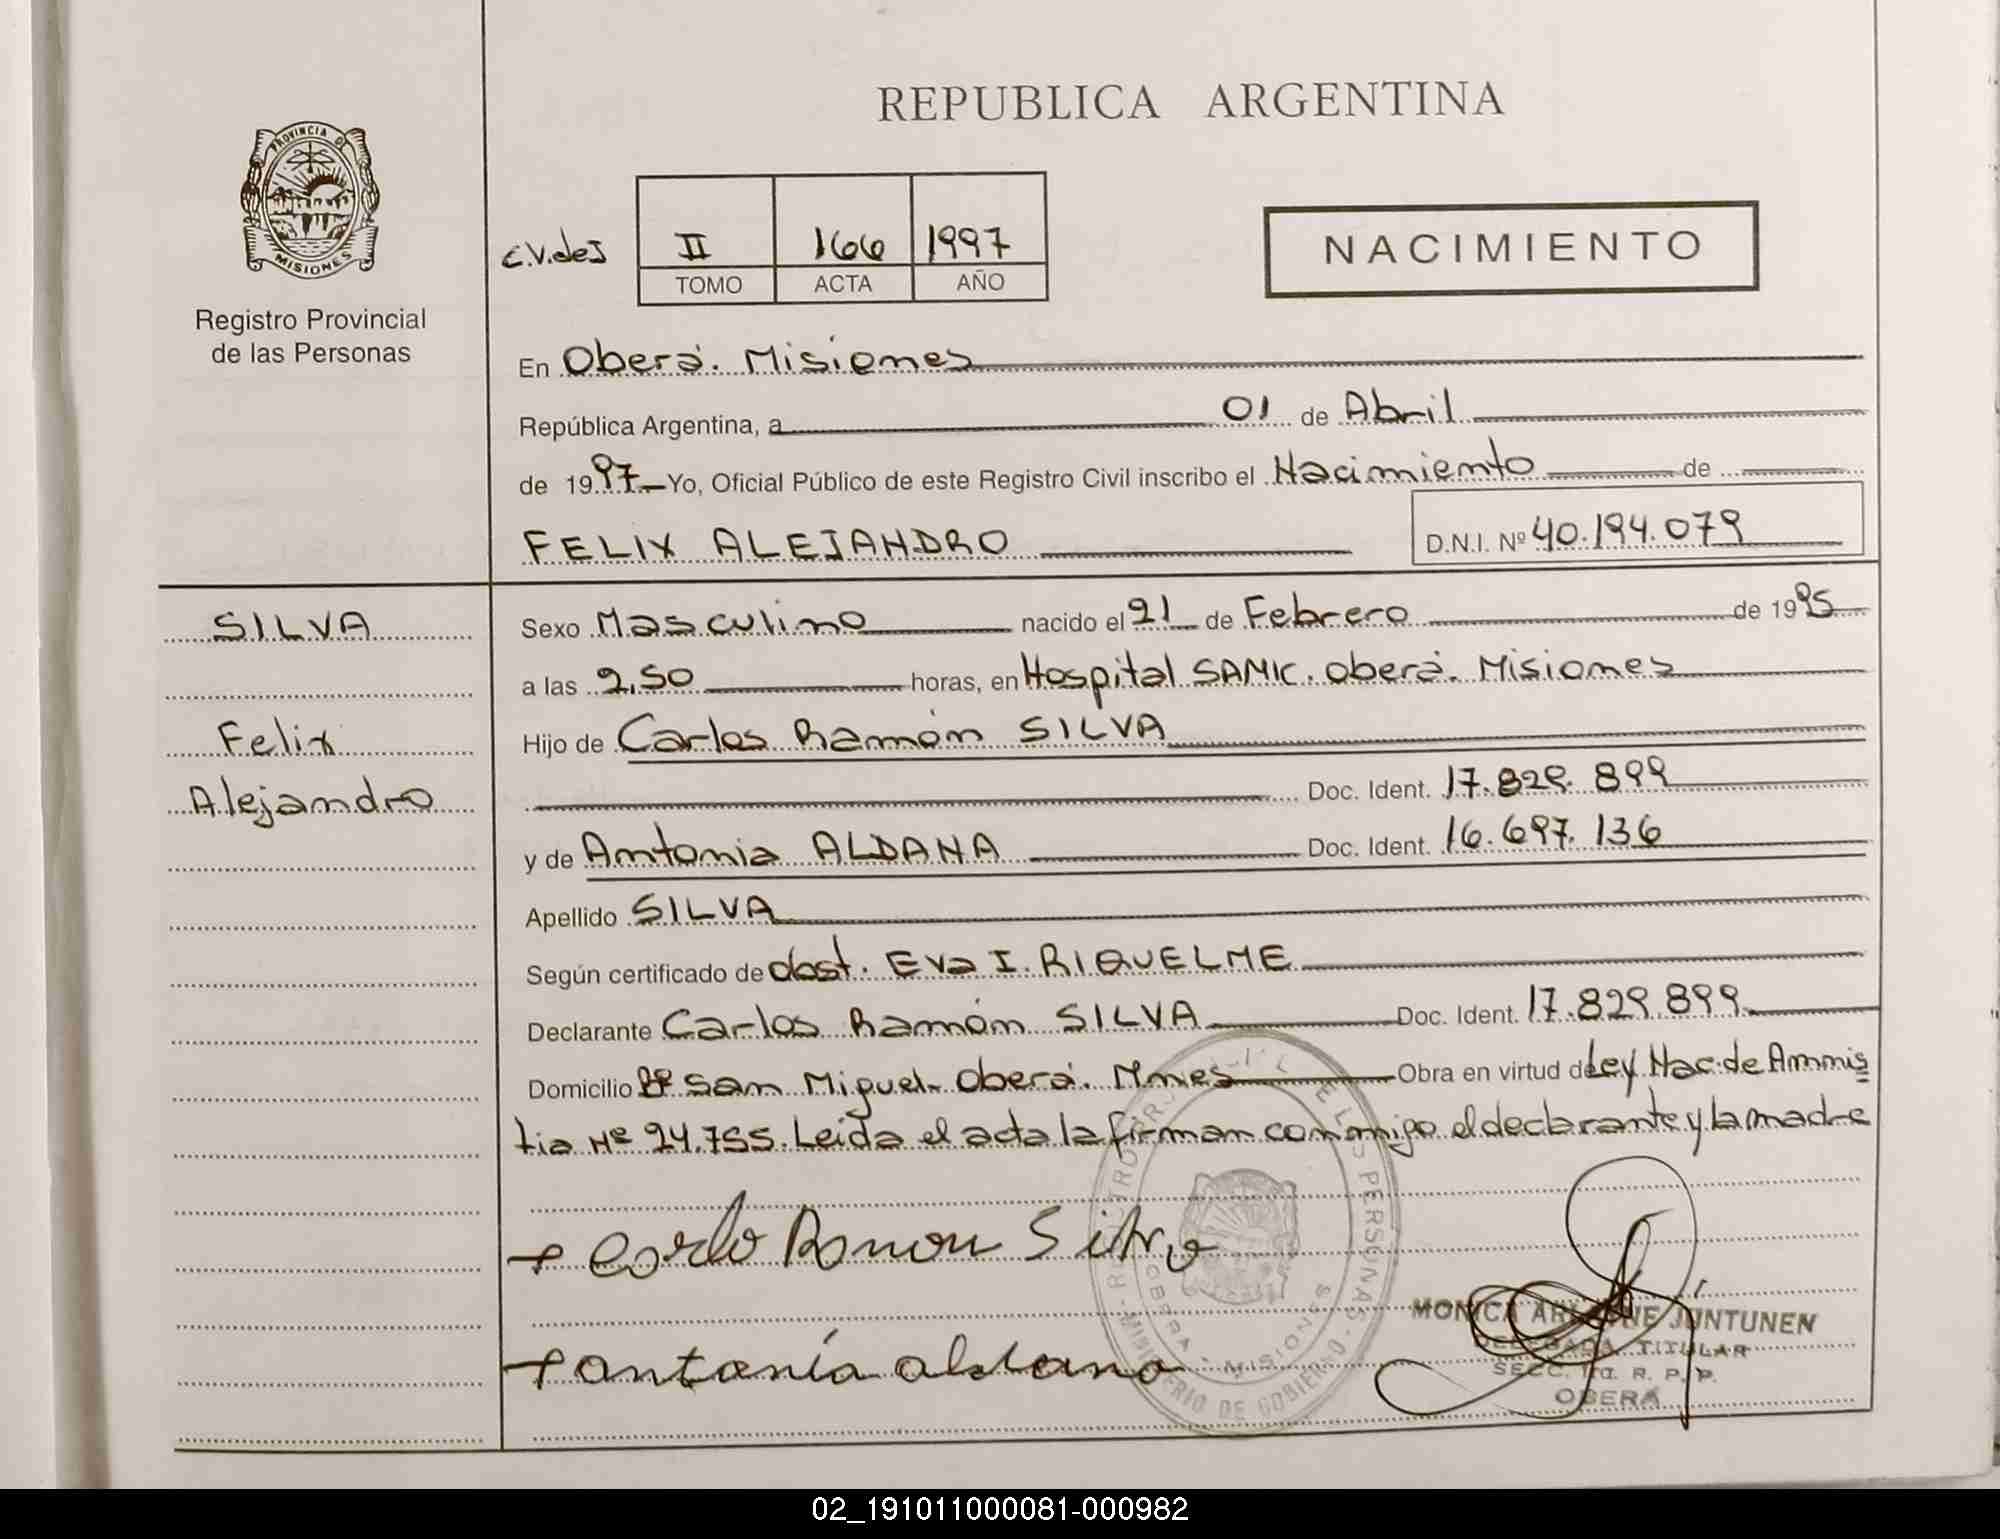 REPUBLICA ARGENTINA
PROVINCIA DE
MISIONES
Registro Provincial
de las Personas
C.V.deJ
II 166 1997
TOMO ACTA AÑO
NACIMIENTO
En Oberá. Misiones
República Argentina, a 01 de Abril
de 1997 Yo, Oficial Público de este Registro Civil inscribo el Nacimiento de
FELIX ALEJANDRO D.N.I. Nº 40.194.079
SILVA
Felix
Alejandro
Sexo Masculino nacido el 21 de Febrero de 1995
a las 2,50 horas, en Hospital SAMIC. Oberá. Misiones
Hijo de Carlos Ramón SILVA
Doc. Ident. 17.829.899
y de Antonia ALDANA Doc. Ident. 16.697.136
Apellido SILVA
Según certificado de obst. Eva I. RIQUELME
Declarante Carlos Ramón SILVA Doc. Ident. 17.829.899
Domicilio Bº San Miguel. Oberá. Mnes Obra en virtud de Ley Nac. de Amnis
tia Nº 24.755. Leida el acta la firman conmigo el declarante y la madre
Carlo Ramon Silva
antonía aldana
MINISTERIO DE GOBIERNO - REGISTRO PROVINCIAL DE LAS PERSONAS
OBERA - MISIONES
MONICA JUNTUNEN
DELEGADA TITULAR
SECC. R. P. P.
OBERÁ
02_191011000081-000982